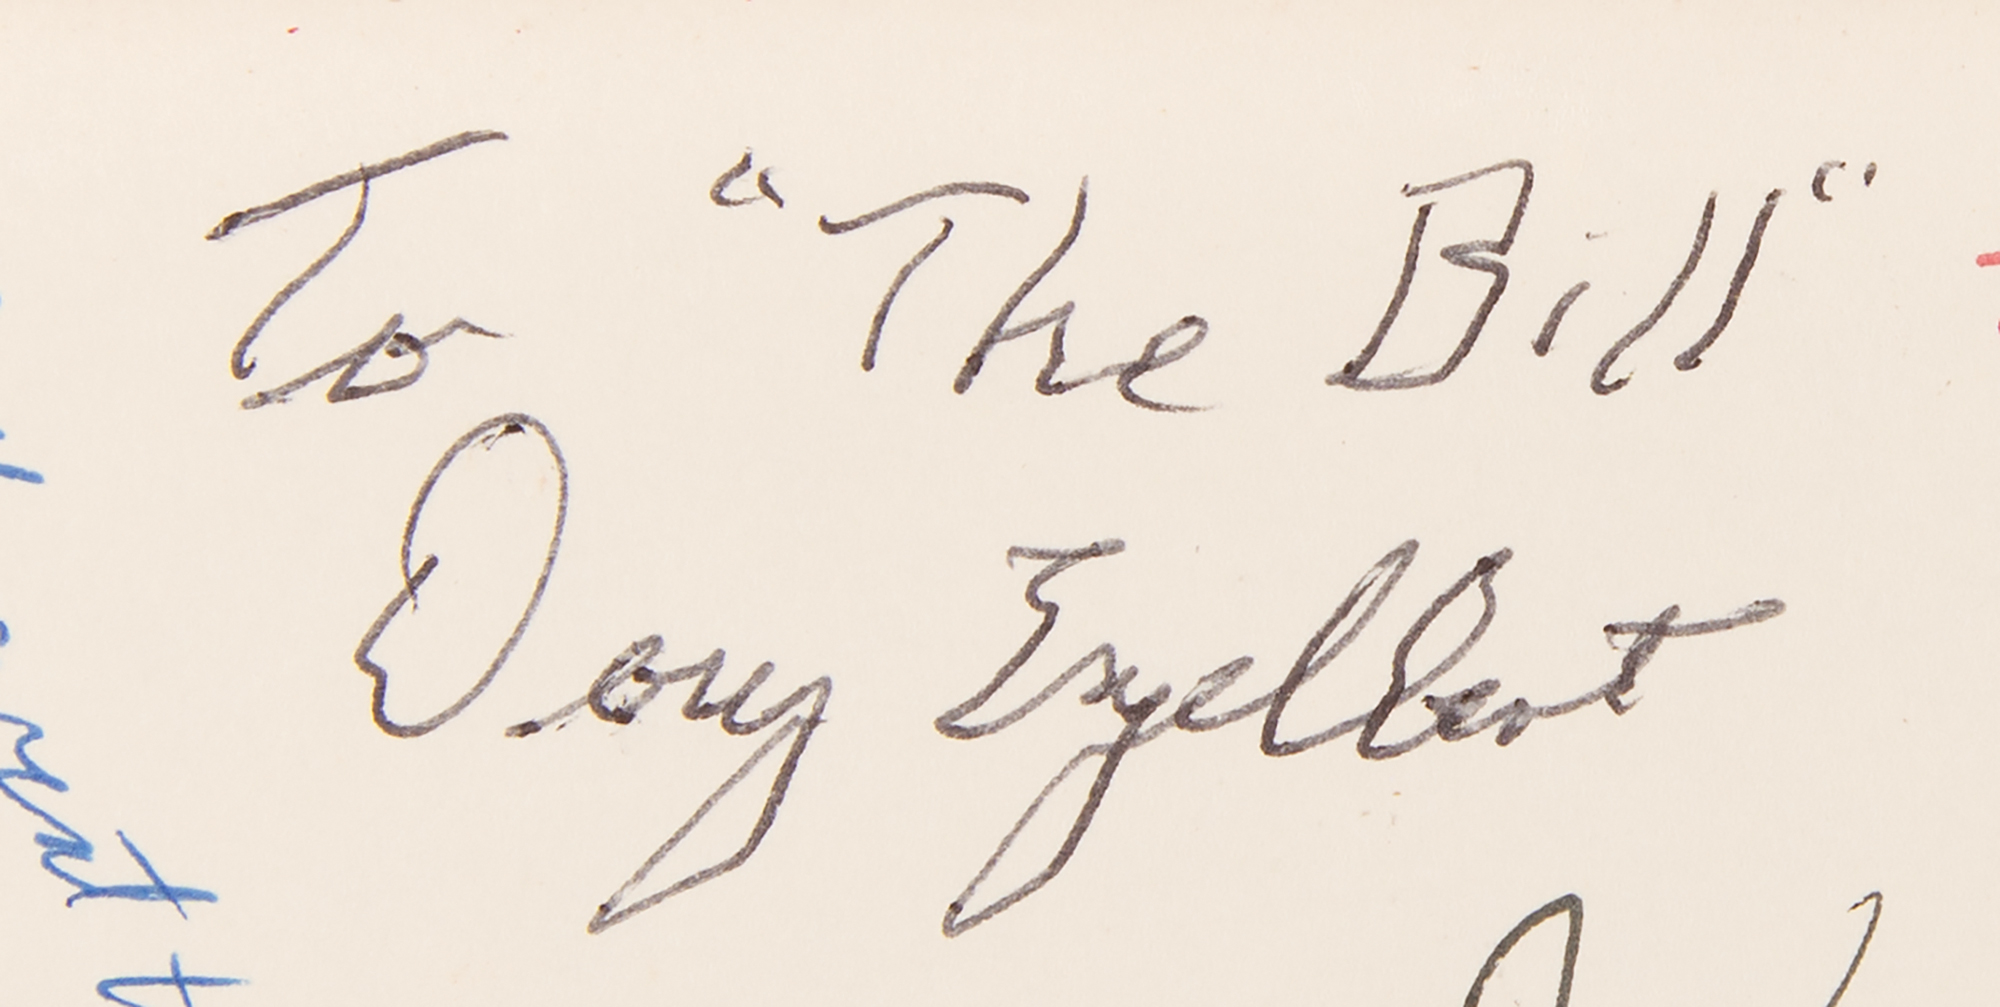 To "The Bill"
Doug Engelbart